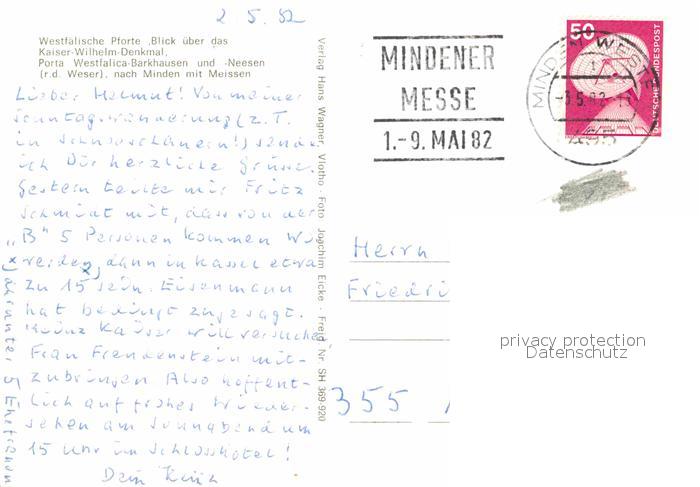 2.5.82
Westfälische Pforte, Blick über das
Kaiser-Wilhelm-Denkmal,
Porta Westfalica-Barkhausen und -Neesen
(r.d. Weser), nach Minden mit Meissen
Lieber Helmut! Von meiner
Sonntagswanderung (z.T.
in Schneeschauern!) sende
ich Dir herzliche Grüsse.
Gestern teilte mir Fritz
Schmidt mit, dass von der
"B" 5 Personen kommen
werden, dann in Kassel etwa
zu 15 sein. Eisenmann
hat bedingt zugesagt.
Heinz Kaiser will versuchen
Frau Freudenstein mit-
zubringen. Also hoffent-
lich auf frohes Wieder-
sehen am Sonnabend um
15 Uhr im Schlosshotel!
Dein
x) darunter 5 Ehefrauen
Verlag Hans Wagner, Vlotho · Foto Joachim Eicke · Freig. Nr. SH 369-920
MINDENER
MESSE
1.-9. MAI 82
50
DEUTSCHE BUNDESPOST
MINDEN, WESTF
-3.5.82
4495
Herrn
Friedri
355
privacy protection
Datenschutz